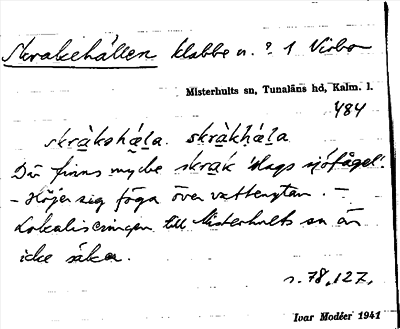 Skrakehällen klabbe n. ? 1 Virbo
Misterhults sn, Tunaläns hd, Kalm. l.
484
skràkəhä́la. skràkhä́la
Där finns mycke skrak 'slags sjöfågel'.
- Höjer sig föga över vattenytan. -
Lokaliseringen till Misterhults sn är
icke säker.
s. 78, 127.
Ivar Modéer 1941